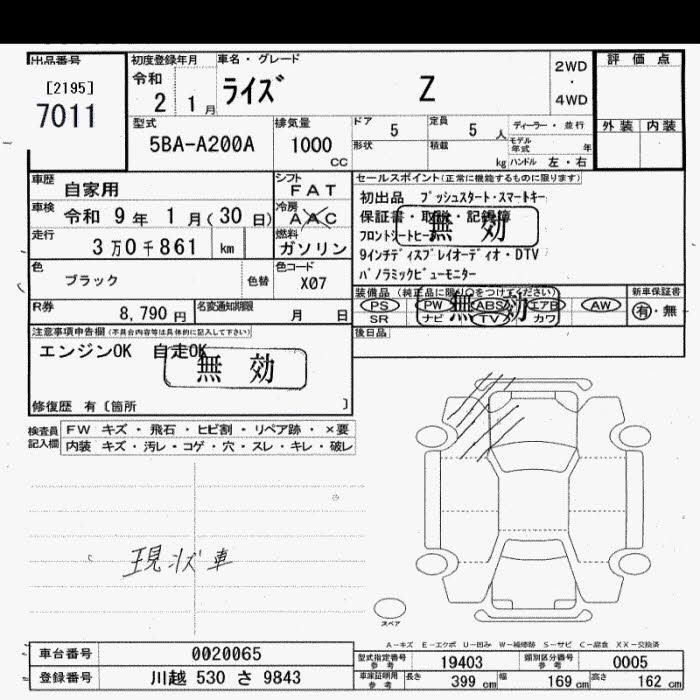 出品番号
[2195]
7011
初度登録年月
令和
2 1 月
車名・グレード
ライズ Z
2WD
・
4WD
評価点
外装 内装
型式
5BA-A200A
排気量
1000
CC
ドア
5
定員
5 人
形状
積載
kg
ディーラー・並行
モデル
年式 年
ハンドル 左・右
車歴
自家用
シフト
FAT
車検
令和 9 年 1 月(30 日)
冷房
AAC
走行
3 万0 千861 km
燃料
ガソリン
色
ブラック
色替
色コード
X07
R券
8,790 円
名変通知期限
月 日
セールスポイント(正常に機能するものに限ります)
初出品 プッシュスタート・スマートキー
保証書・取説・記録簿
フロントシートヒーター
無効
9インチディスプレイオーディオ・DTV
パノラミックビューモニター
装備品(純正品に限り○をつけてください)
PS PW ABS エアB AW
SR ナビ TV カワ
無効
新車保証書
有・無
後日品
注意事項申告欄(不具合内容等は具体的に記入して下さい)
エンジンOK 自走OK
無効
修復歴 有〔箇所 〕
検査員
記入欄
FW キズ・飛石・ヒビ割・リペア跡・×要
内装 キズ・汚レ・コゲ・穴・スレ・キレ・破レ
現状車
スペア
A-キズ E-エクボ U-凹み W-補修跡 S-サビ C-腐食 XX-交換済
車台番号
0020065
登録番号
川越 530 さ 9843
型式指定番号
参考
19403
類別区分番号
参考
0005
車庫証明用
参考
長さ 399 cm 幅 169 cm 高さ 162 cm